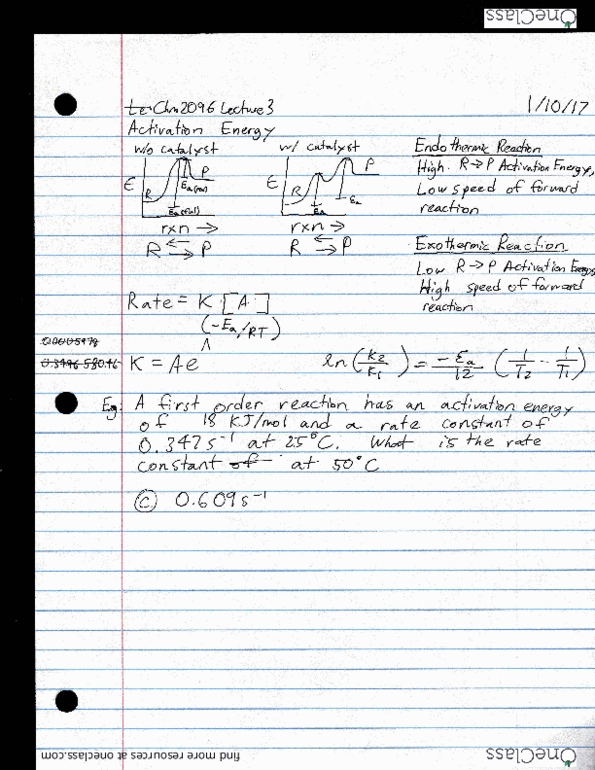 OneClass
Chm2096 Lecture 3
1/10/17
Activation Energy
w/o catalyst
w/ catalyst
E
R
P
Ea(rev)
Ea(fwd)
rxn →
R ⇄ P
E
R
P
Ea
Ea
rxn →
R ⇄ P
Endothermic Reaction
High R→P Activation Energy,
Low speed of forward
reaction
Exothermic Reaction
Low R→P Activation Energy
High speed of forward
reaction
Rate = K [A]
K = Ae^(-Ea/RT)
ln(K2/K1) = -Ea/R (1/T2 - 1/T1)
Eg: A first order reaction has an activation energy
of 18 KJ/mol and a rate constant of
0.347 s⁻¹ at 25°C. What is the rate
constant of at 50°C
(C) 0.609 s⁻¹
find more resources at oneclass.com
OneClass